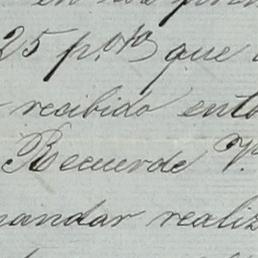 25 p.% que
recibido ento
Recuerde V.
mandar realiz